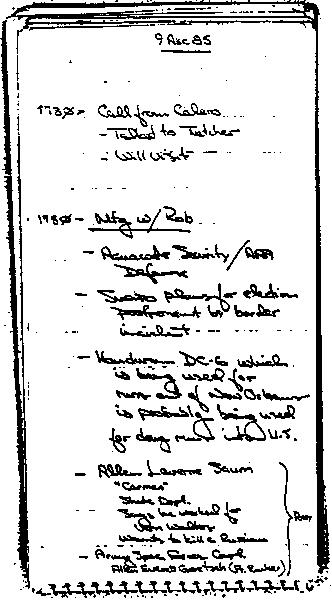 9 Aug 85
1730 - Call from Calero
- Talked to Fletcher
- Will Visit
1980 - Mtg w/ Rob
- Security /
Defense
- plans for election
postponement b/c border
incident
- Honduran DC-6 which
is being used for
runs out of New Orleans
is probably being used
for drug runs into U.S.
- Allen Laverne Saum
"Carmen"
State Dept.
Says he worked for
John
Wants to kill a Russian
- Army Spec Forces Capt.